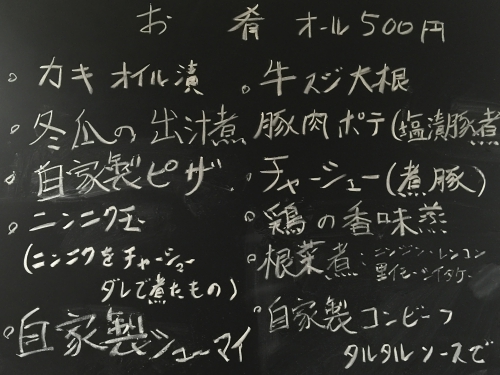 お肴 オール500円
カキオイル漬
冬瓜の出汁煮
自家製ピザ
ニンニク玉
(ニンニクをチャーシュー
ダレで煮たもの)
自家製シューマイ
牛スジ大根
豚肉ポテ(塩漬豚煮
チャーシュー(煮豚)
鶏の香味蒸
根菜煮:ニンジン・レンコン
里イモ・シイタケ
自家製コンビーフ
タルタルソースで